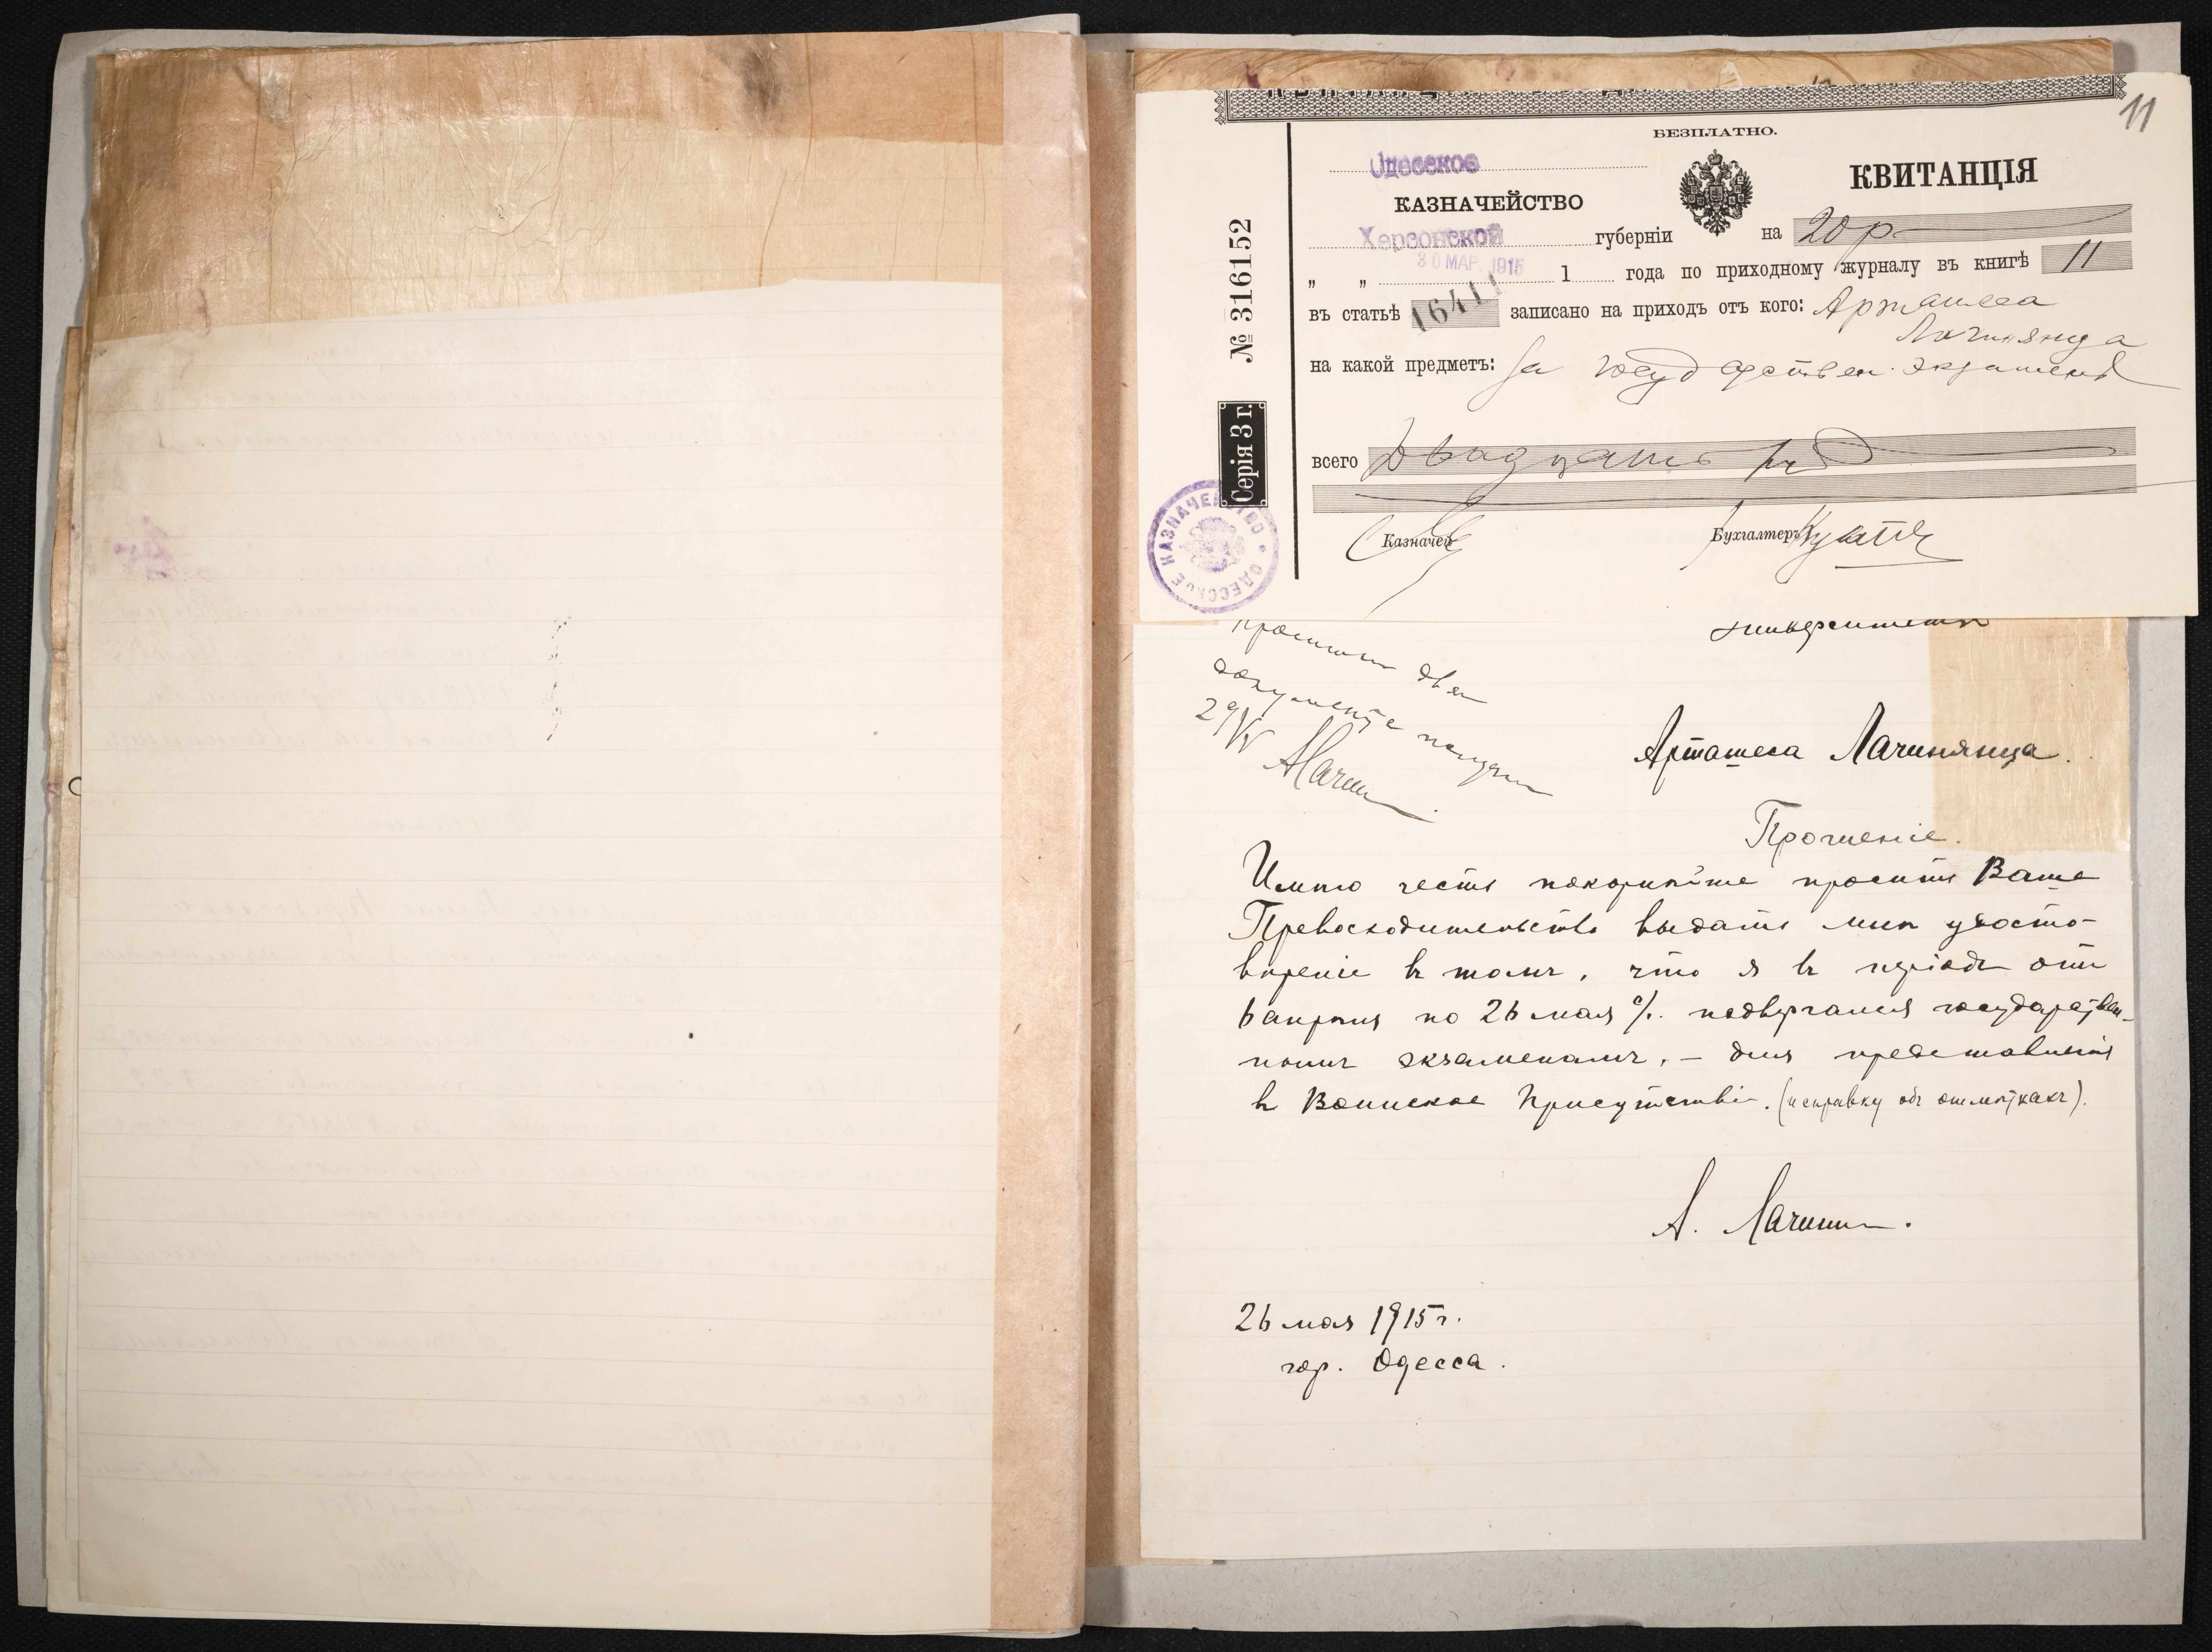 11
БЕЗПЛАТНО.
Одесское
КАЗНАЧЕЙСТВО
КВИТАНЦІЯ
Херсонской губерніи на 20 р
„ „ 30 МАР 1915 1 года по приходному журналу въ книгѣ 11
въ статьѣ 16411 записано на приходъ отъ кого: Арташеса
Лачинянца
на какой предметъ: за государствен. экзамены
всего Двадцать руб
Казначей Бухгалтеръ
№ 316152
Серія 3 г.
ОДЕССКОЕ КАЗНАЧЕЙСТВО
Университета
документа
29/V
А Лачин
Арташеса Лачинянца.
Прошеніе.
Имѣю честь покорнѣйше просить Ваше
Превосходительство выдать мнѣ удосто-
вѣреніе въ томъ, что я въ періодъ отъ
6 апрѣля по 26 мая с/г. подвергался государствен-
нымъ экзаменамъ, – для представленія
въ Воинское Присутствіе. (и справку объ отмѣткахъ).
А. Лачин.
26 мая 1915 г.
гор. Одесса.